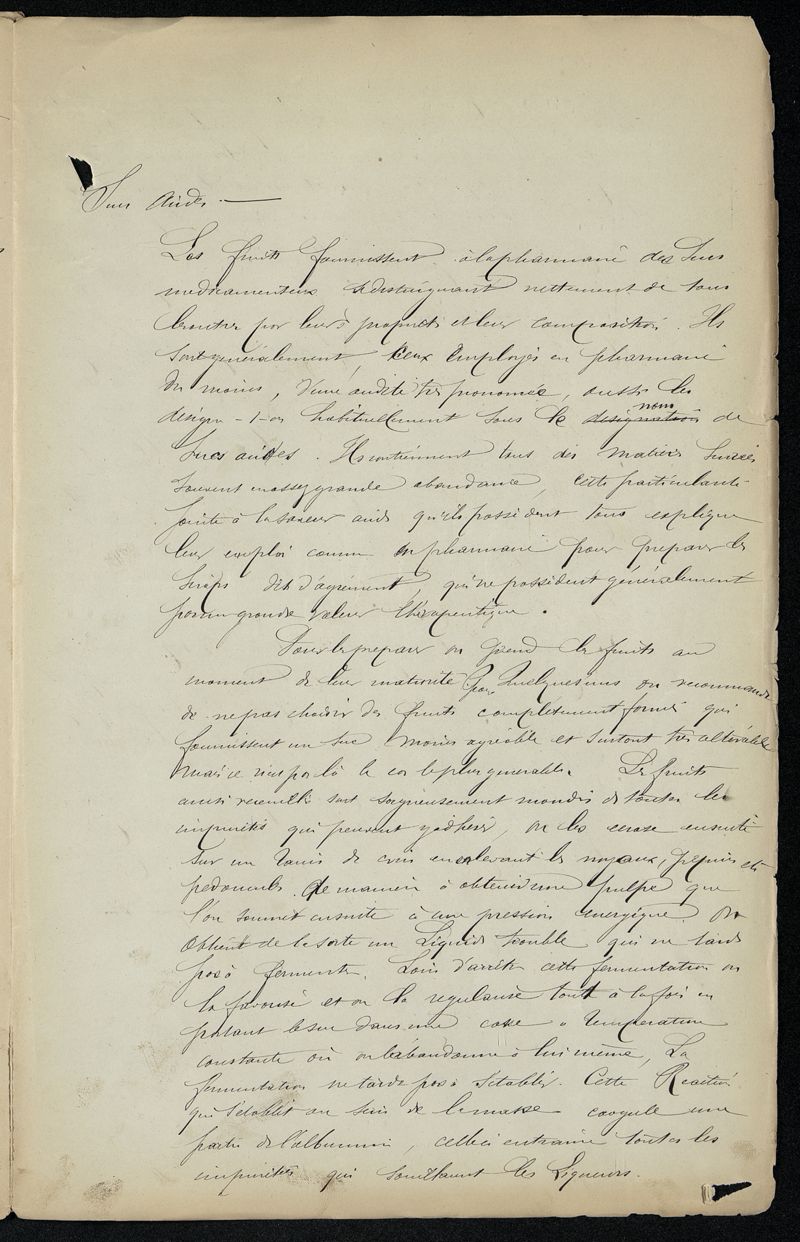 Sucs Acides. —
Les fruits fournissent à la pharmacie des Sucs
médicamenteux se distinguant nettement de tous
les autres par leurs propriétés et leur composition. Ils
sont généralement, ceux employés en pharmacie
du moins, d'une acidité très prononcée, aussi les
désigne-t-on habituellement sous le nom de
Sucs acides. Ils contiennent tous des matières sucrées
souvent en assez grande abondance, cette particularité
jointe à la saveur acide qu'ils possèdent tous explique
leur emploi comme en pharmacie pour préparer les
sirops dits d'agrément, qui ne possèdent généralement
pas une grande valeur thérapeutique.
Pour les préparer on prend les fruits au
moment de leur maturité pour quelques uns on recommande
de ne pas choisir des fruits complètement formés qui
fournissent un suc moins agréable et surtout très altérable
mais ce n'est pas là le cas le plus générable. Les fruits
ainsi recueillis sont soigneusement mondés de toutes les
impuretés qui peuvent y adhérer, on les écrase ensuite
sur un tamis de crin en enlevant les noyaux, pépins et
pédoncules. De manière à obtenir une pulpe que
l'on soumet ensuite à une pression énergique. On
obtient de la sorte un liquide trouble qui ne tarde
pas à fermenter. Loin d'arrêter cette fermentation on
la favorise et on la régularise tout à la fois en
portant le suc dans une cave à température
constante où on l'abandonne à lui même, La
fermentation ne tarde pas à s'établir. Cette Réaction
qui s'établit au sein de la masse coagule une
partie de l'albumine, celle ci entraîne toutes les
impuretés qui souillaient les Liqueurs.